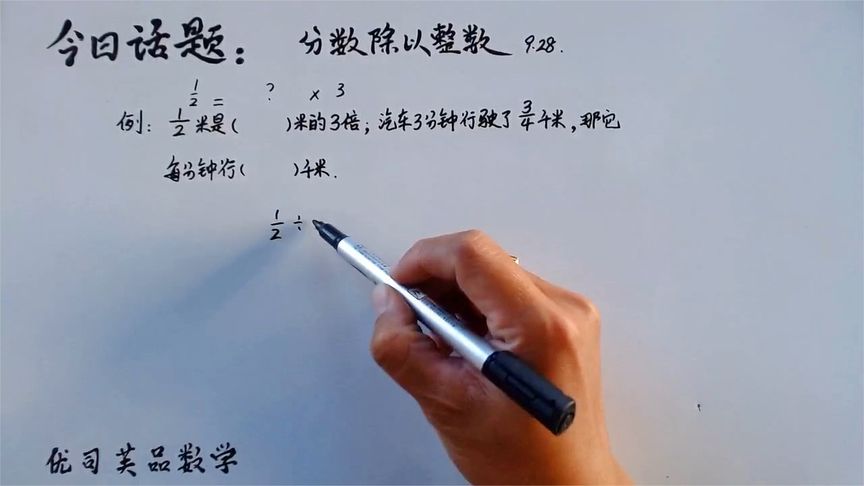 今日话题： 分数除以整数 9.28.
1/2 = ? × 3
例：1/2米是( )米的3倍；汽车3分钟行驶了3/4千米，那它
每分钟行( )千米.
1/2 ÷
优司芙品数学